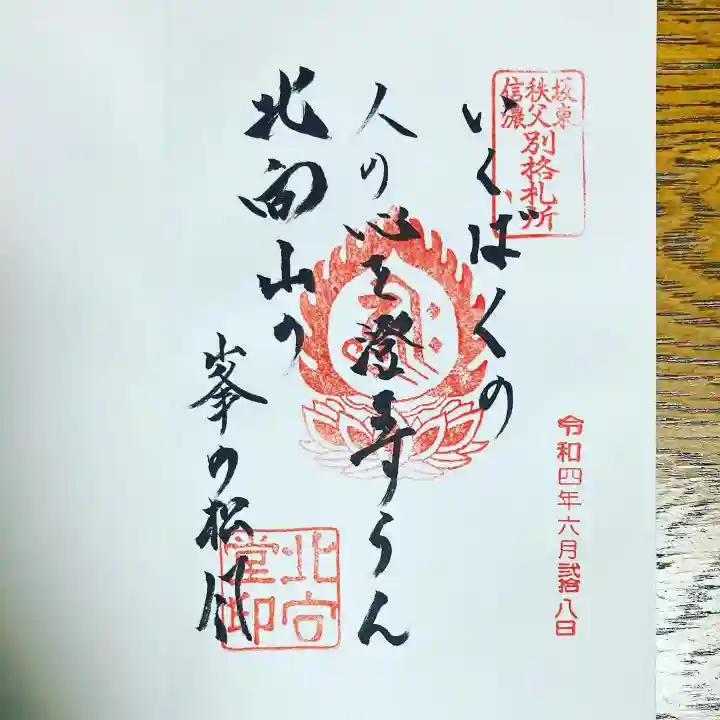 坂東
秩父
信濃
別格札所
いくばくの
人の心を澄すらん
北向山の
峯の松風
令和四年六月弐拾八日
北向
堂印